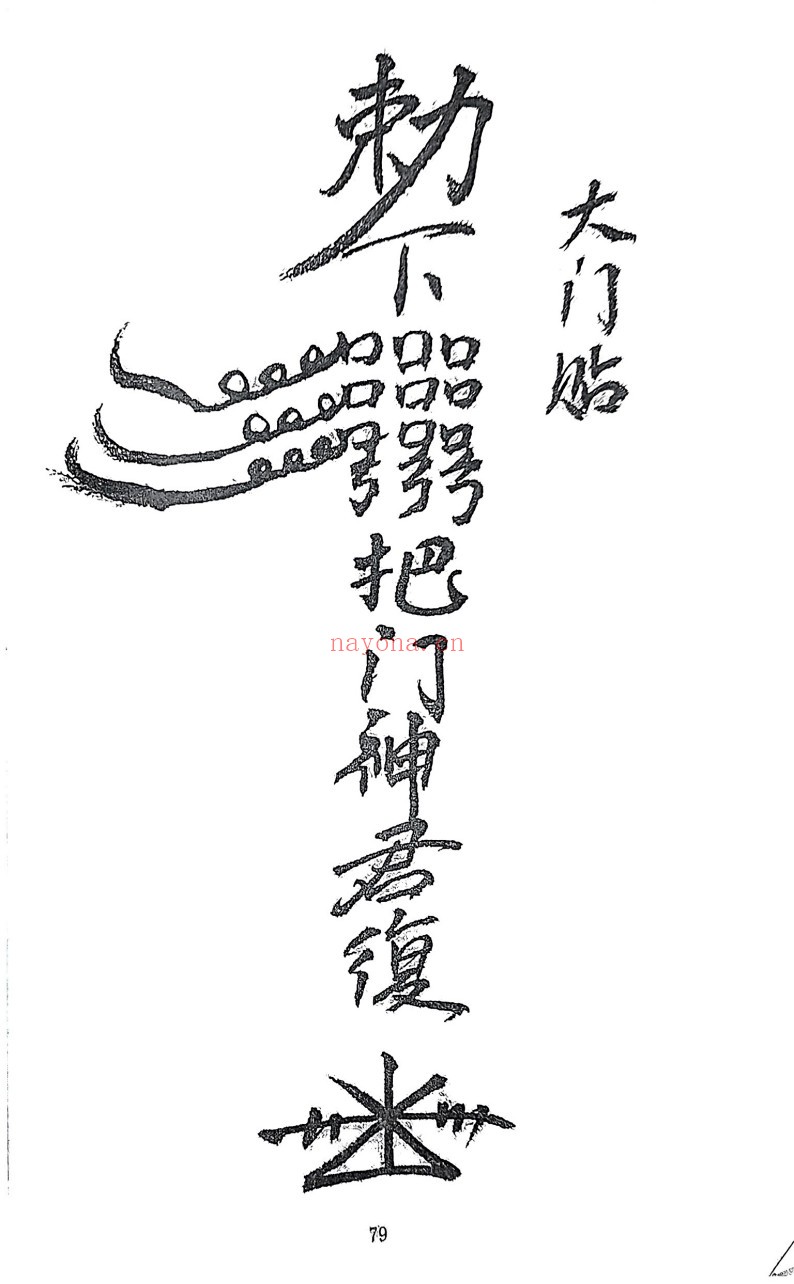 大门贴
勅下
把门神君復
nayona.cn
79